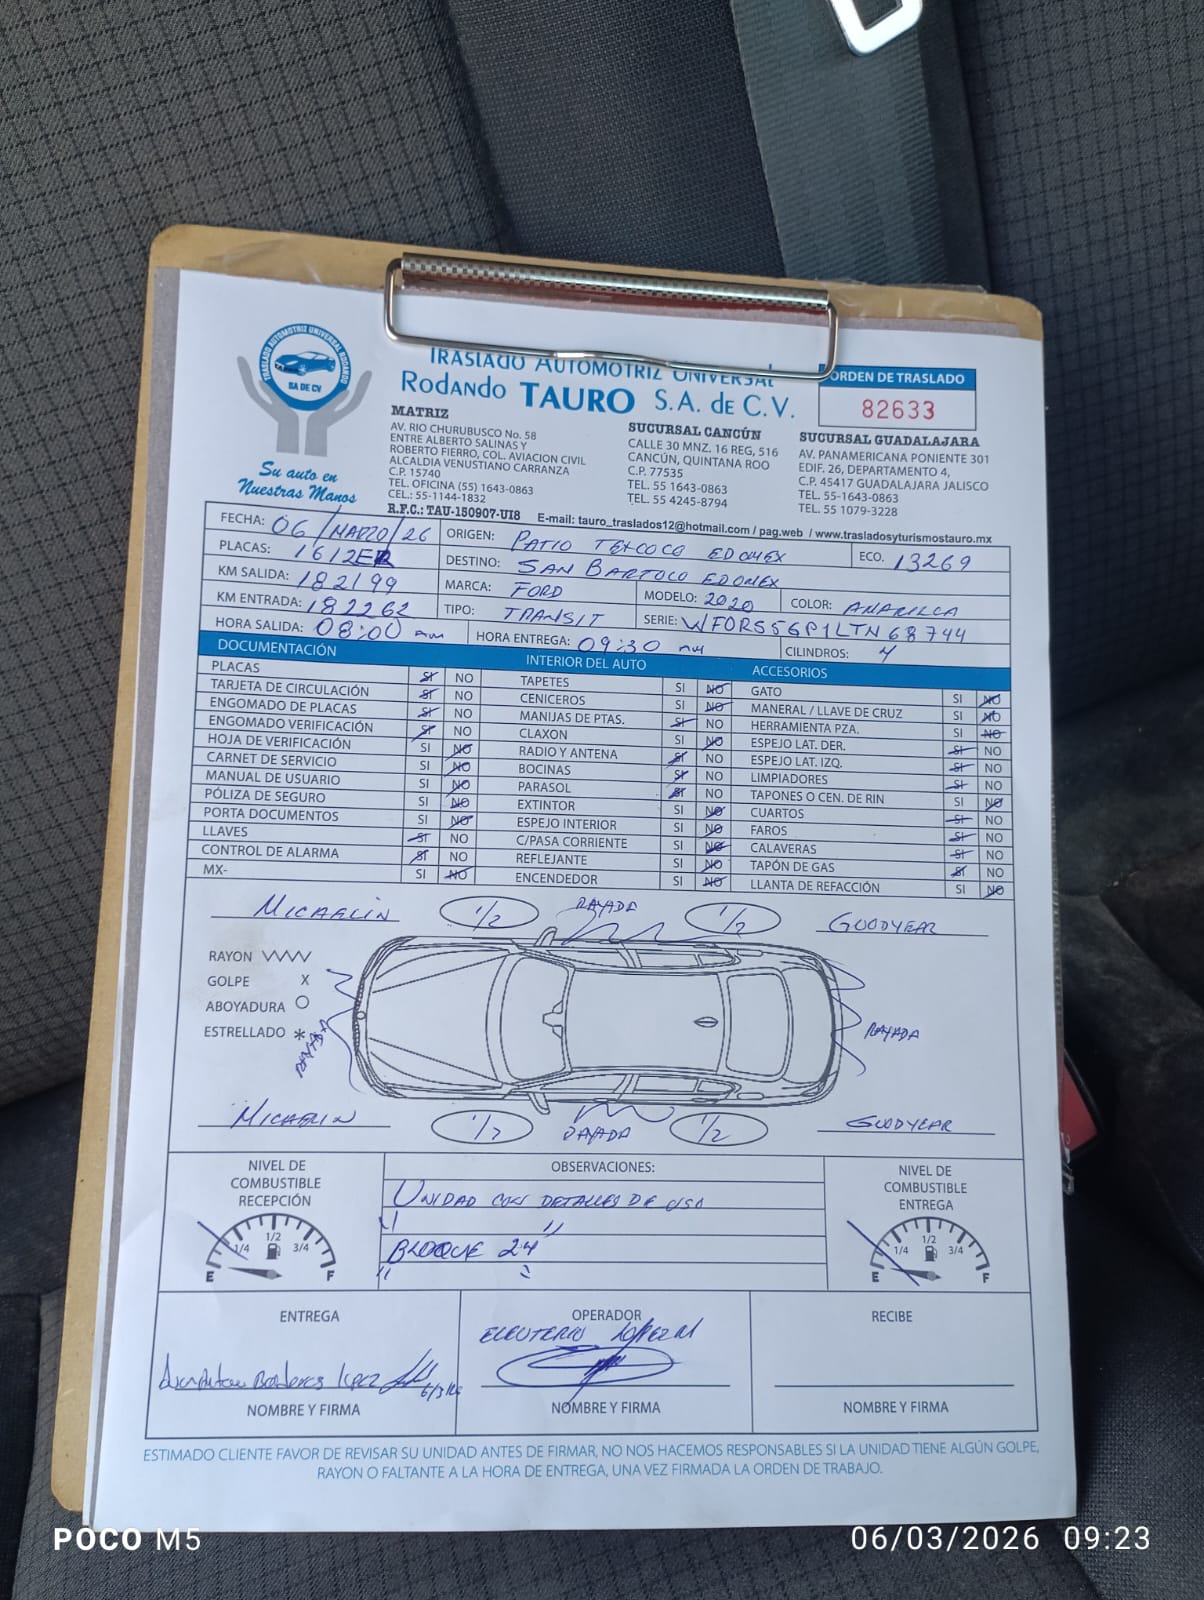 TRASLADO AUTOMOTRIZ UNIVERSAL RODANDO
SA DE CV
Su auto en
Nuestras Manos
TRASLADO AUTOMOTRIZ UNIVERSAL
Rodando TAURO S.A. de C.V.
ORDEN DE TRASLADO
82633
MATRIZ
AV. RIO CHURUBUSCO No. 58
ENTRE ALBERTO SALINAS Y
ROBERTO FIERRO, COL. AVIACION CIVIL
ALCALDIA VENUSTIANO CARRANZA
C.P. 15740
TEL. OFICINA (55) 1643-0863
CEL.: 55-1144-1832
R.F.C.: TAU-150907-UI8
SUCURSAL CANCÚN
CALLE 30 MNZ. 16 REG, 516
CANCÚN, QUINTANA ROO
C.P. 77535
TEL. 55 1643-0863
TEL. 55 4245-8794
SUCURSAL GUADALAJARA
AV. PANAMERICANA PONIENTE 301
EDIF. 26, DEPARTAMENTO 4,
C.P. 45417 GUADALAJARA JALISCO
TEL. 55-1643-0863
TEL. 55 1079-3228
E-mail: tauro_traslados12@hotmail.com / pag.web / www.trasladosyturismostauro.mx
FECHA: 06/MARZO/26 ORIGEN: PATIO TEXCOCO EDOMEX ECO. 13269
PLACAS: 1612ER DESTINO: SAN BARTOLO EDOMEX
KM SALIDA: 182199 MARCA: FORD MODELO: 2020 COLOR: AMARILLA
KM ENTRADA: 182262 TIPO: TRANSIT SERIE: WF0RS56P1LTN68744
HORA SALIDA: 08:00 am HORA ENTREGA: 09:30 am CILINDROS: 4
DOCUMENTACIÓN INTERIOR DEL AUTO ACCESORIOS
PLACAS SI NO TAPETES SI NO GATO SI NO
TARJETA DE CIRCULACIÓN SI NO CENICEROS SI NO MANERAL / LLAVE DE CRUZ SI NO
ENGOMADO DE PLACAS SI NO MANIJAS DE PTAS. SI NO HERRAMIENTA PZA. SI NO
ENGOMADO VERIFICACIÓN SI NO CLAXON SI NO ESPEJO LAT. DER. SI NO
HOJA DE VERIFICACIÓN SI NO RADIO Y ANTENA SI NO ESPEJO LAT. IZQ. SI NO
CARNET DE SERVICIO SI NO BOCINAS SI NO LIMPIADORES SI NO
MANUAL DE USUARIO SI NO PARASOL SI NO TAPONES O CEN. DE RIN SI NO
PÓLIZA DE SEGURO SI NO EXTINTOR SI NO CUARTOS SI NO
PORTA DOCUMENTOS SI NO ESPEJO INTERIOR SI NO FAROS SI NO
LLAVES SI NO C/PASA CORRIENTE SI NO CALAVERAS SI NO
CONTROL DE ALARMA SI NO REFLEJANTE SI NO TAPÓN DE GAS SI NO
MX- SI NO ENCENDEDOR SI NO LLANTA DE REFACCIÓN SI NO
MICHELIN 1/2 RAYADA 1/2 GOODYEAR
RAYON
GOLPE X
ABOYADURA O
ESTRELLADO *
RAYADA
RAYADA
MICHELIN 1/2 RAYADA 1/2 GOODYEAR
NIVEL DE COMBUSTIBLE RECEPCIÓN
E 1/4 1/2 3/4 F
OBSERVACIONES:
UNIDAD CON DETALLES DE USO
BLOQUE 24
NIVEL DE COMBUSTIBLE ENTREGA
E 1/4 1/2 3/4 F
ENTREGA OPERADOR RECIBE
ELEUTERIO
6/3/26
NOMBRE Y FIRMA NOMBRE Y FIRMA NOMBRE Y FIRMA
ESTIMADO CLIENTE FAVOR DE REVISAR SU UNIDAD ANTES DE FIRMAR, NO NOS HACEMOS RESPONSABLES SI LA UNIDAD TIENE ALGÚN GOLPE,
RAYON O FALTANTE A LA HORA DE ENTREGA, UNA VEZ FIRMADA LA ORDEN DE TRABAJO.
POCO M5
06/03/2026 09:23